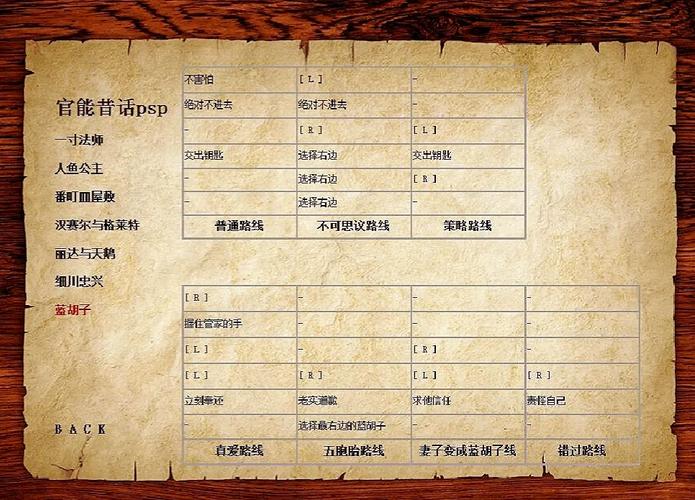 官能昔话psp
一寸法师
人鱼公主
番町皿屋敷
汉赛尔与格莱特
丽达与天鹅
细川忠兴
蓝胡子
BACK
不害怕 [L] -
绝对不进去 绝对不进去 -
- [R] [L]
交出钥匙 选择右边 交出钥匙
- 选择右边 [R]
- 选择右边 -
普通路线 不可思议路线 策略路线
[R] - - -
握住管家的手 - - -
[L] - [R] -
[L] [R] [L] [R]
立刻奉还 老实道歉 求他信任 责怪自己
- 选择最右边的蓝胡子 - -
真爱路线 五胞胎路线 妻子变成蓝胡子线 错过路线